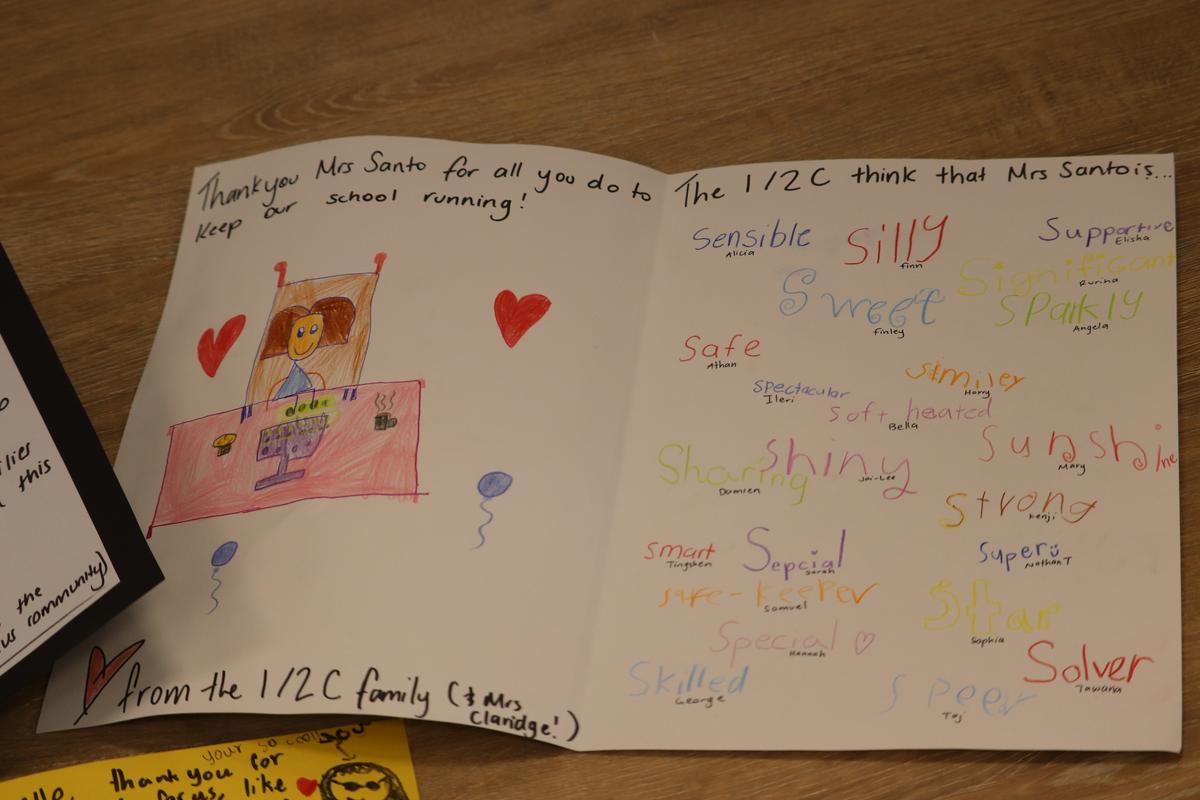 Thankyou Mrs Santo for all you do to
keep our school running!
from the 1/2C family (& Mrs
Claridge!)
The 1/2C think that Mrs Santo is...
Sensible
Alicia
Silly
Finn
Supportive
Elisha
Significant
Rurina
Sweet
Finley
SPArkly
Angela
Safe
Athan
Smiley
Harry
spectacular
Ileri
soft heated
Bella
Sunshine
Mary
Sharing
Damien
Shiny
Jai-Lee
Strong
Kenji
smart
Tingshen
Sepcial
Sarah
super
Nathan T
safe-keeper
Samuel
Star
Sophia
Special
Hannah
Solver
Tawana
Skilled
George
Speer
Taj
this
the
us community)
your so cool
you
thank you for
for us, like